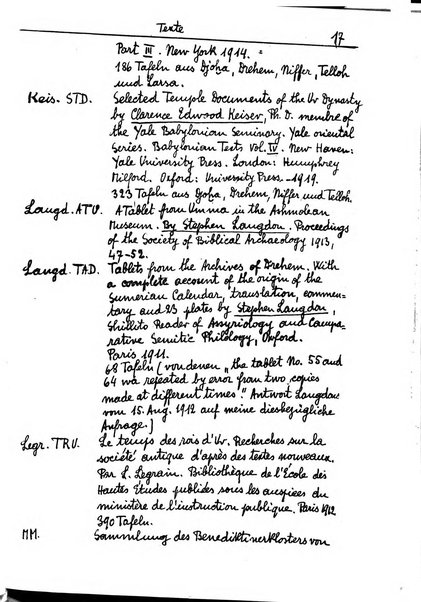 Texte 17
Part III. New York 1914.
186 Tafeln aus Djoha, Drehem, Niffer, Telloh
und Larsa.
Keis. STD. Selected Temple Documents of the Ur Dynasty
by Clarence Edwood Keiser, Ph. D. membre of
the Yale Babylonian Seminory. Yale oriental
Series. Babylonian Texts Vol. IV. New Haven:
Yale University Press. London: Humphrey
Milford. Oxford: University Press 1919.
323 Tafeln aus Djoha, Drehem, Niffer und Telloh.
Langd. ATU. A Tablet from Umma in the Ashmolean
Museum. By Stephen Langdon. Proceedings
of the Society of Biblical Archaeology 1913,
47-52.
Langd. TAD. Tablets from the Archives of Drehem. With
a complete account of the origin of the
Sumerian Calendar, translation, commen-
tary and 23 plates by Stephen Langdon,
Shillito Reader of Assyriology and Compa-
rative Semitic Philology, Oxford.
Paris 1911.
68 Tafeln [von denen „the tablet No. 55 and
64 wa repeated by error from two copies
made at different times". Antwort Langdons
vom 15. Aug. 1912 auf meine diesbezügliche
Anfrage.]
Legr. TRU. Le temps des rois d'Ur. Recherches sur la
société antique d'après des textes nouveaux.
Par L. Legrain. Bibliothèque de l'École des
Hautes Études publiées sous les auspices du
ministère de l'instruction publique. Paris 1912
390 Tafeln.
MM. Sammlung des Benediktinerklosters von